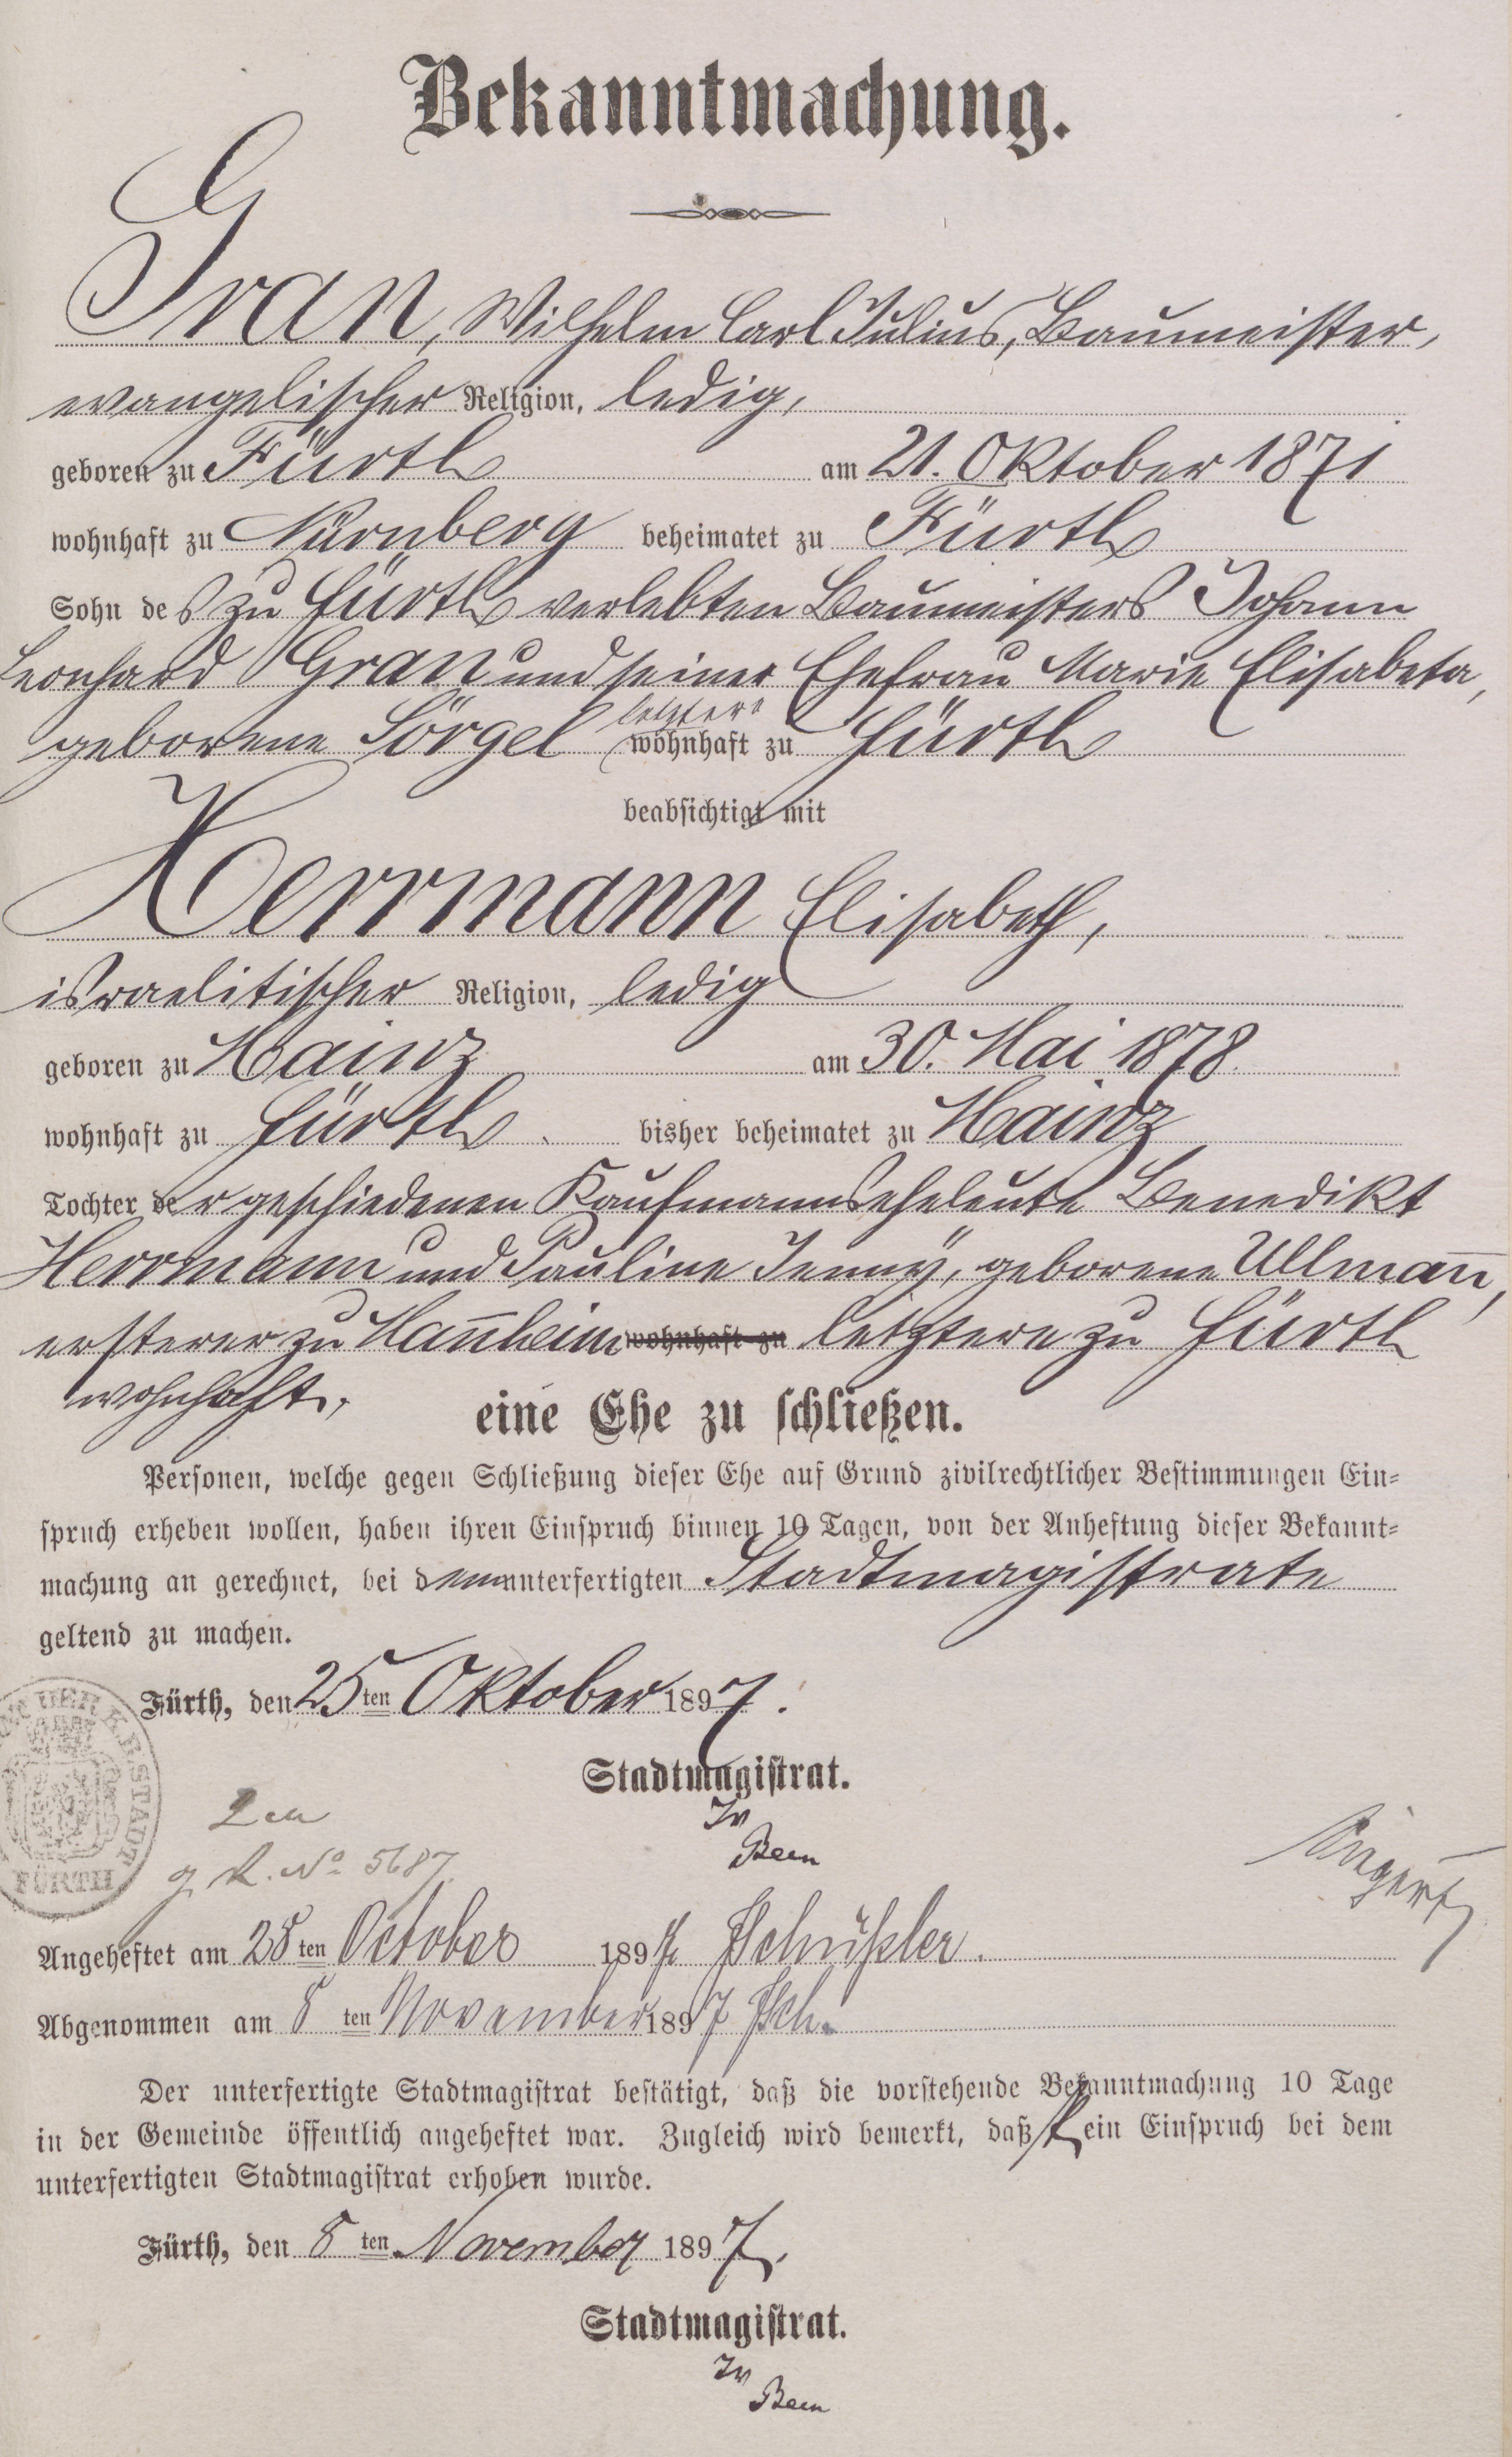 Bekanntmachung.
Gran, Wilhelm Carl Julius, Baumeister,
evangelischer Religion, ledig,
geboren zu Fürth am 21. Oktober 1871
wohnhaft zu Nürnberg beheimatet zu Fürth
Sohn des zu Fürth verlebten Baumeisters Johann
Leonhard Gran und seiner Ehefrau Marie Elisabeta,
geborene Sörgel letztere wohnhaft zu Fürth
beabsichtigt mit
Herrmann Elisabeth,
israelitischer Religion, ledig
geboren zu Mainz am 30. Mai 1878.
wohnhaft zu Fürth. bisher beheimatet zu Mainz
Tochter der geschiedenen Kaufmannseheleute Benedikt
Herrmann und Pauline Jenny, geborene Ullmañ,
ersterer zu Mañheim wohnhaft zu letztere zu Fürth
wohnhaft,
eine Ehe zu schließen.
Personen, welche gegen Schließung dieser Ehe auf Grund zivilrechtlicher Bestimmungen Ein-
spruch erheben wollen, haben ihren Einspruch binnen 10 Tagen, von der Anheftung dieser Bekannt-
machung an gerechnet, bei dem unterfertigten Stadtmagistrate
geltend zu machen.
Fürth, den 25ten Oktober 1897.
Stadtmagistrat.
R. No 5687.
FÜRTH
Angeheftet am 28ten October 1897
Abgenommen am 8ten November 1897 Sch.
Der unterfertigte Stadtmagistrat bestätigt, daß die vorstehende Bekanntmachung 10 Tage
in der Gemeinde öffentlich angeheftet war. Zugleich wird bemerkt, daß kein Einspruch bei dem
unterfertigten Stadtmagistrat erhoben wurde.
Fürth, den 8ten November 1897.
Stadtmagistrat.